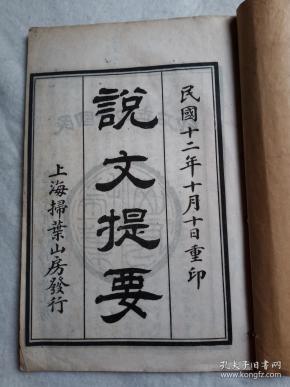 民國十二年十月十日重印
說文提要
上海掃葉山房發行
孔夫子旧书网